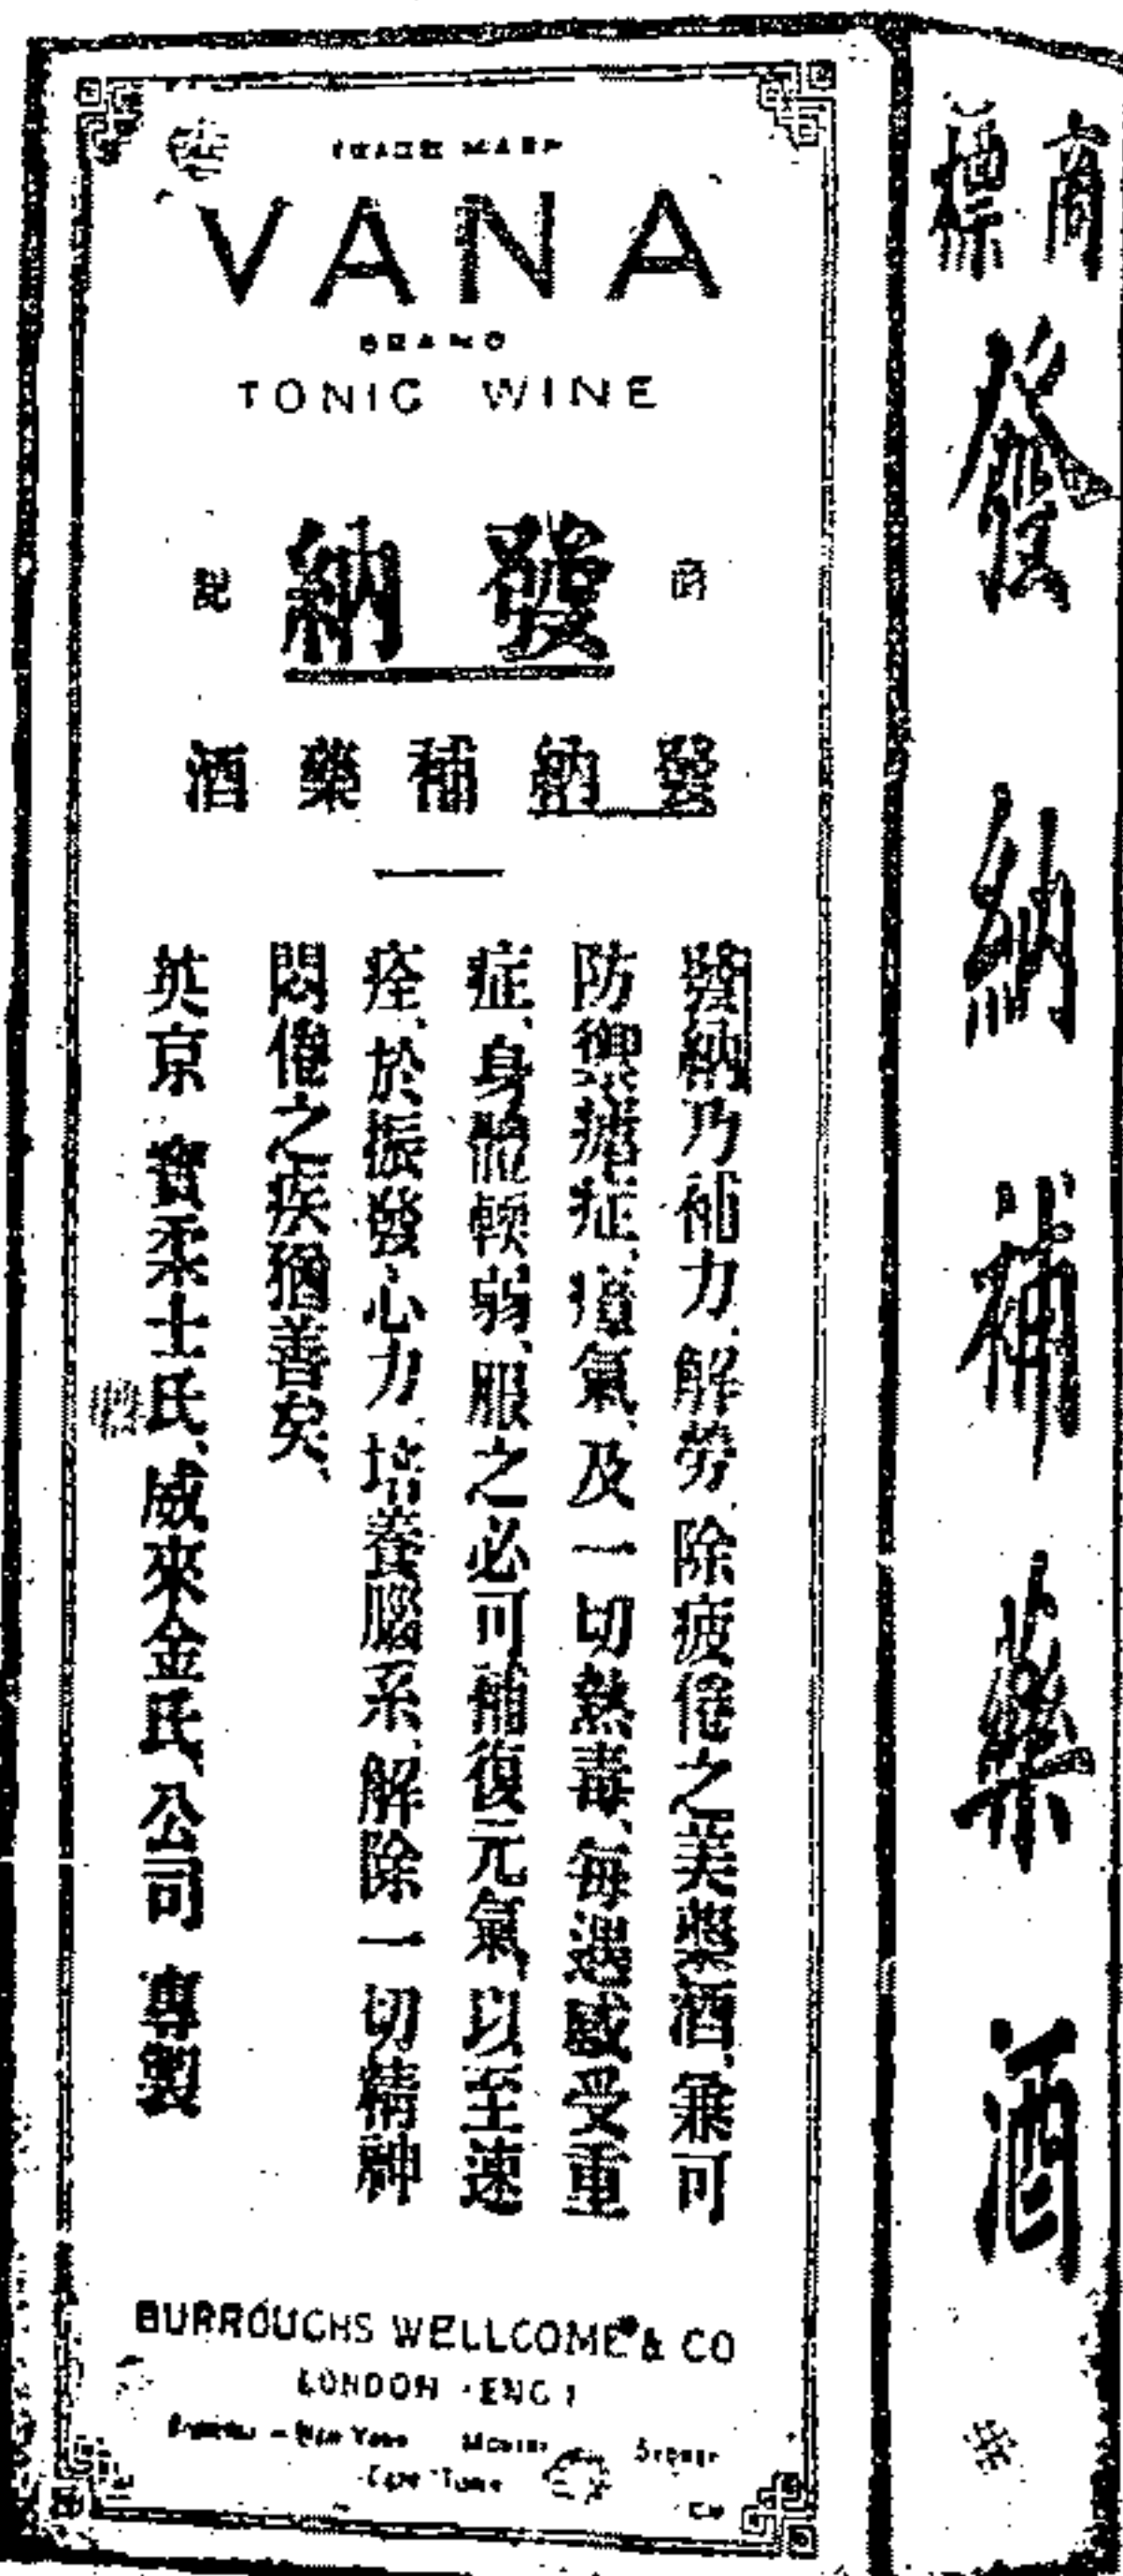 TRADE MARK
VANA
BRAND
TONIC WINE
商 發納 記
發納補藥酒
發納乃補力、解勞、除疲倦之美藥酒、兼可
防禦瘧症、瘴氣、及一切熱毒、每遇感受重
症、身體輭弱、服之必可補復元氣、以至速
痊、於振發心力、培養腦系、解除一切精神
悶倦之疾猶善矣、
英京 寶柔士氏、威來金氏、公司 專製
BURROUGHS WELLCOME & CO
LONDON ENG
New York Sydney
Cape Town
商標
發納補藥酒